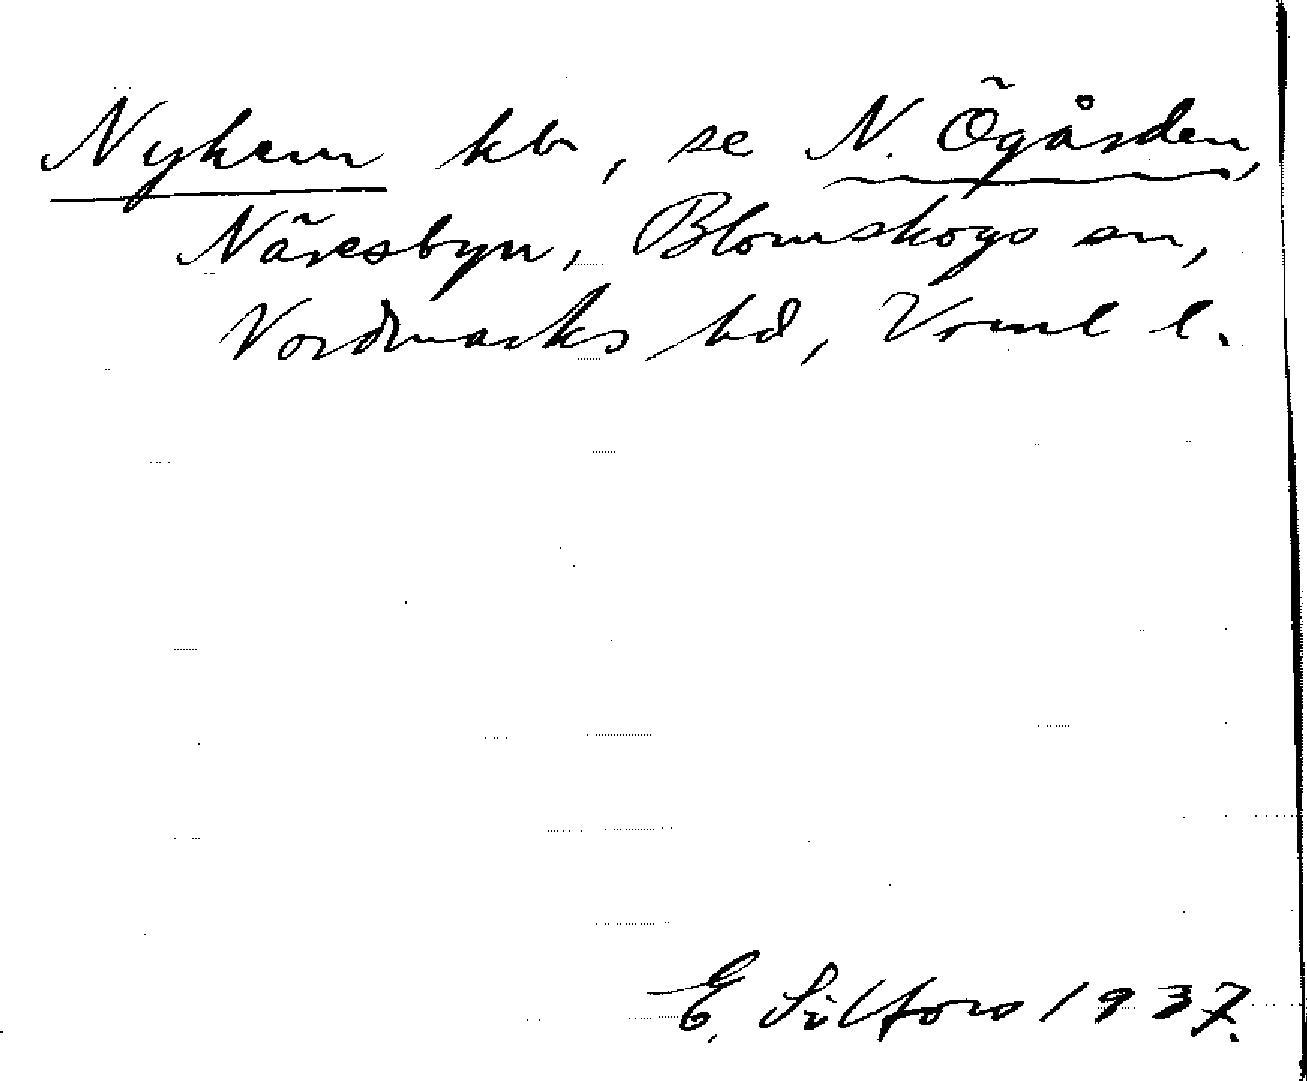 Nyhem hb, se N. Ögården,
Näresbyn, Blomskogs sn,
Nordmarks hd, Vrml l.
E. Silfors 1937.